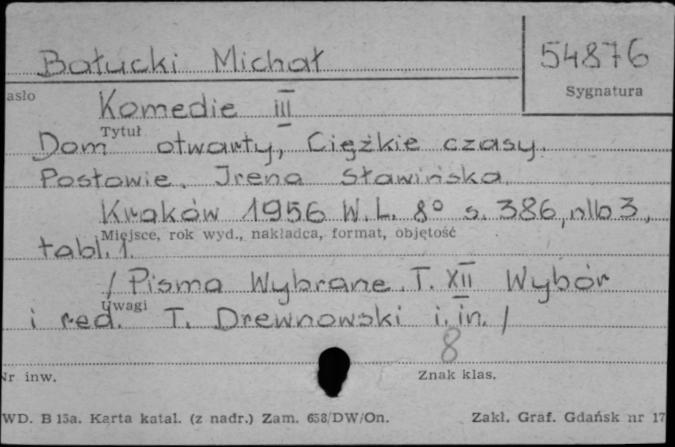 Bałucki Michał
54876
Sygnatura
asło
Komedie III
Tytuł
Dom otwarty, Ciężkie czasy.
Posłowie. Irena Sławińska.
Kraków 1956 W.L. 8° s. 386, nlb 3,
Miejsce, rok wyd., nakładca, format, objętość
tabl. 1.
/ Pisma Wybrane. T. XII Wybór
Uwagi
i red. T. Drewnowski i. in. /
8
Nr inw.
Znak klas.
WD. B 15a. Karta katal. (z nadr.) Zam. 658/DW/On.
Zakł. Graf. Gdańsk nr 17